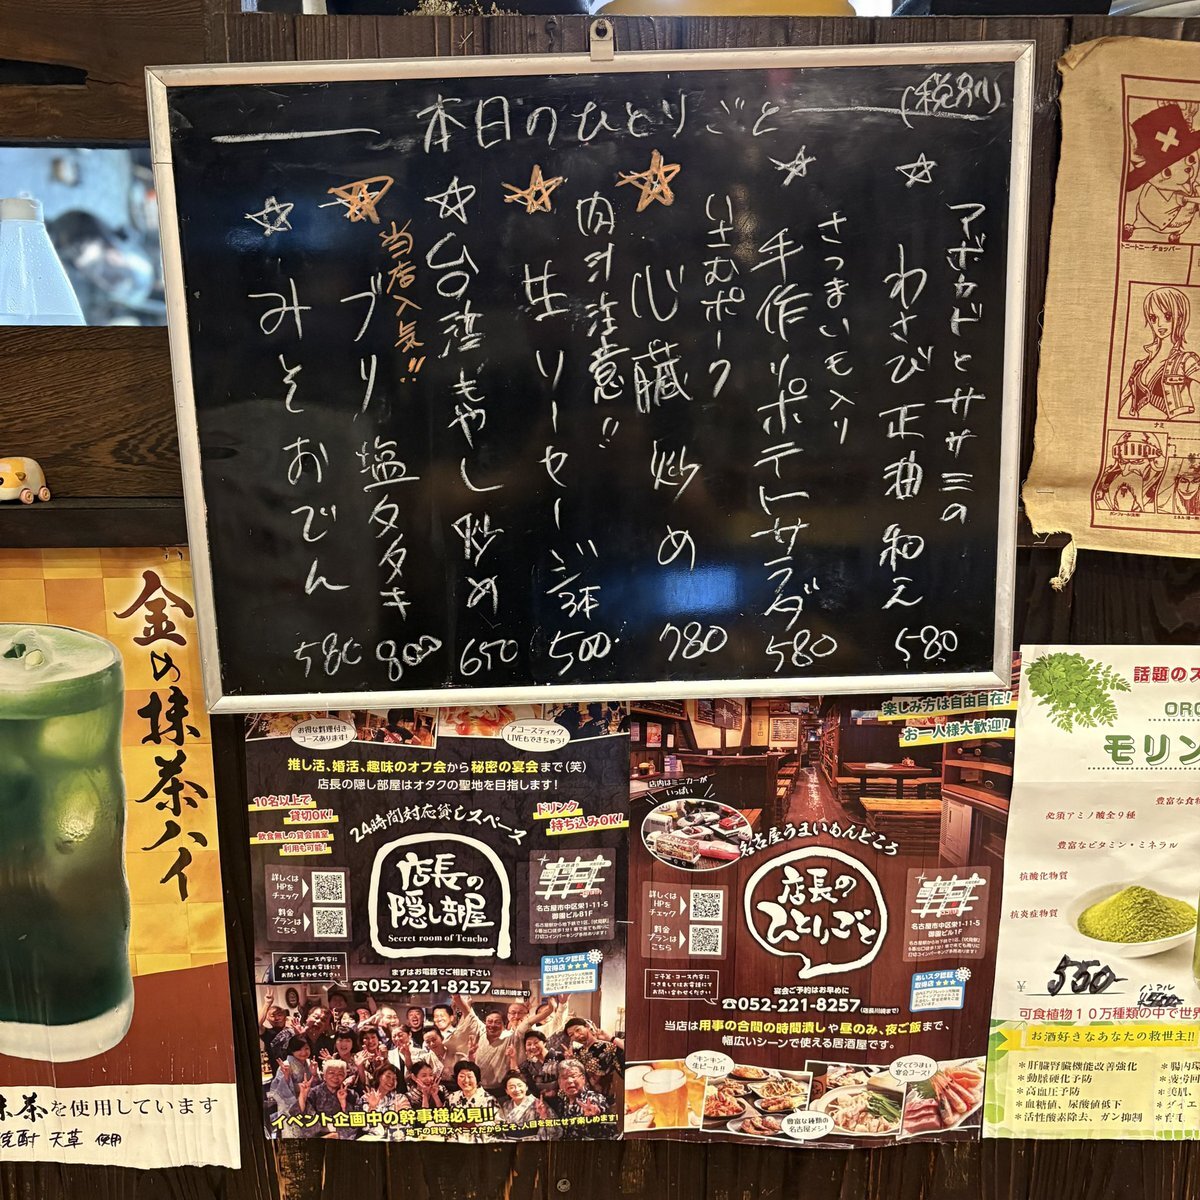 本日のひとりごと
(税別)
アボカドとササミの
☆わさび正油和え
580
さつまいも入り
☆手作りポテトサラダ
580
いさむポーク
☆心臓炒め
780
肉汁注意!!
☆生ソーセージ3本
500
☆台湾もやし炒め
650
当店人気!!
☆ブリ塩タタキ
800
☆みそおでん
580
トニートニー・チョッパー
ナミ
金の抹茶ハイ
抹茶を使用しています
焼酎 天草 使用
お得な料理付きコースあります!
アコースティックLIVEもできちゃう!
推し活、婚活、趣味のオフ会から秘密の宴会まで(笑)
店長の隠し部屋はオタクの聖地を目指します!
10名以上で
貸切OK!
飲食無しの貸会議室
利用も可能!
ドリンク
持ち込みOK!
24時間対応貸しスペース
店長の
隠し部屋
Secret room of Tencho
詳しくは
HPを
チェック
料金
プランは
こちら
名古屋市中区栄1-11-5
御園ビルB1F
ご予算・コース内容に
つきましてはお客様にて
お問い合わせください
まずはお電話でご相談下さい
☎052-221-8257
(店長川崎まで)
あいスタ認証
取得店★★★
イベント企画中の幹事様必見!!
地下の貸切スペースだからこそ、人目を気にせず楽しめます!
楽しみ方は自由自在!
お一人様大歓迎!
店内はミニカーが
いっぱい
名古屋うまいもんどころ
店長の
ひとりごと
詳しくは
HPを
チェック
料金
プランは
こちら
名古屋市中区栄1-11-5
御園ビル1F
ご予算・コース内容に
つきましてはお客様にて
お問い合わせください
宴会ご予約はお早めに
☎052-221-8257
(店長川崎まで)
あいスタ認証
取得店★★★
当店は用事の合間の時間潰しや昼のみ、夜ご飯まで、
幅広いシーンで使える居酒屋です。
"キンキン"
生ビール!!
安くてうまい
宴会コース!
豊富な種類の
名古屋メシ!
話題のス
ORG
モリン
豊富な食物
必須アミノ酸全9種
豊富なビタミン・ミネラル
抗酸化物質
抗炎症物質
¥550
可食植物10万種類の中で世界
お酒好きなあなたの救世主!!
*肝臓腎臓機能改善強化
*動脈硬化予防
*高血圧予防
*血糖値、尿酸値低下
*活性酸素除去、ガン抑制
*腸内環
*疲労回
*美肌、
*ダイエ
*育て